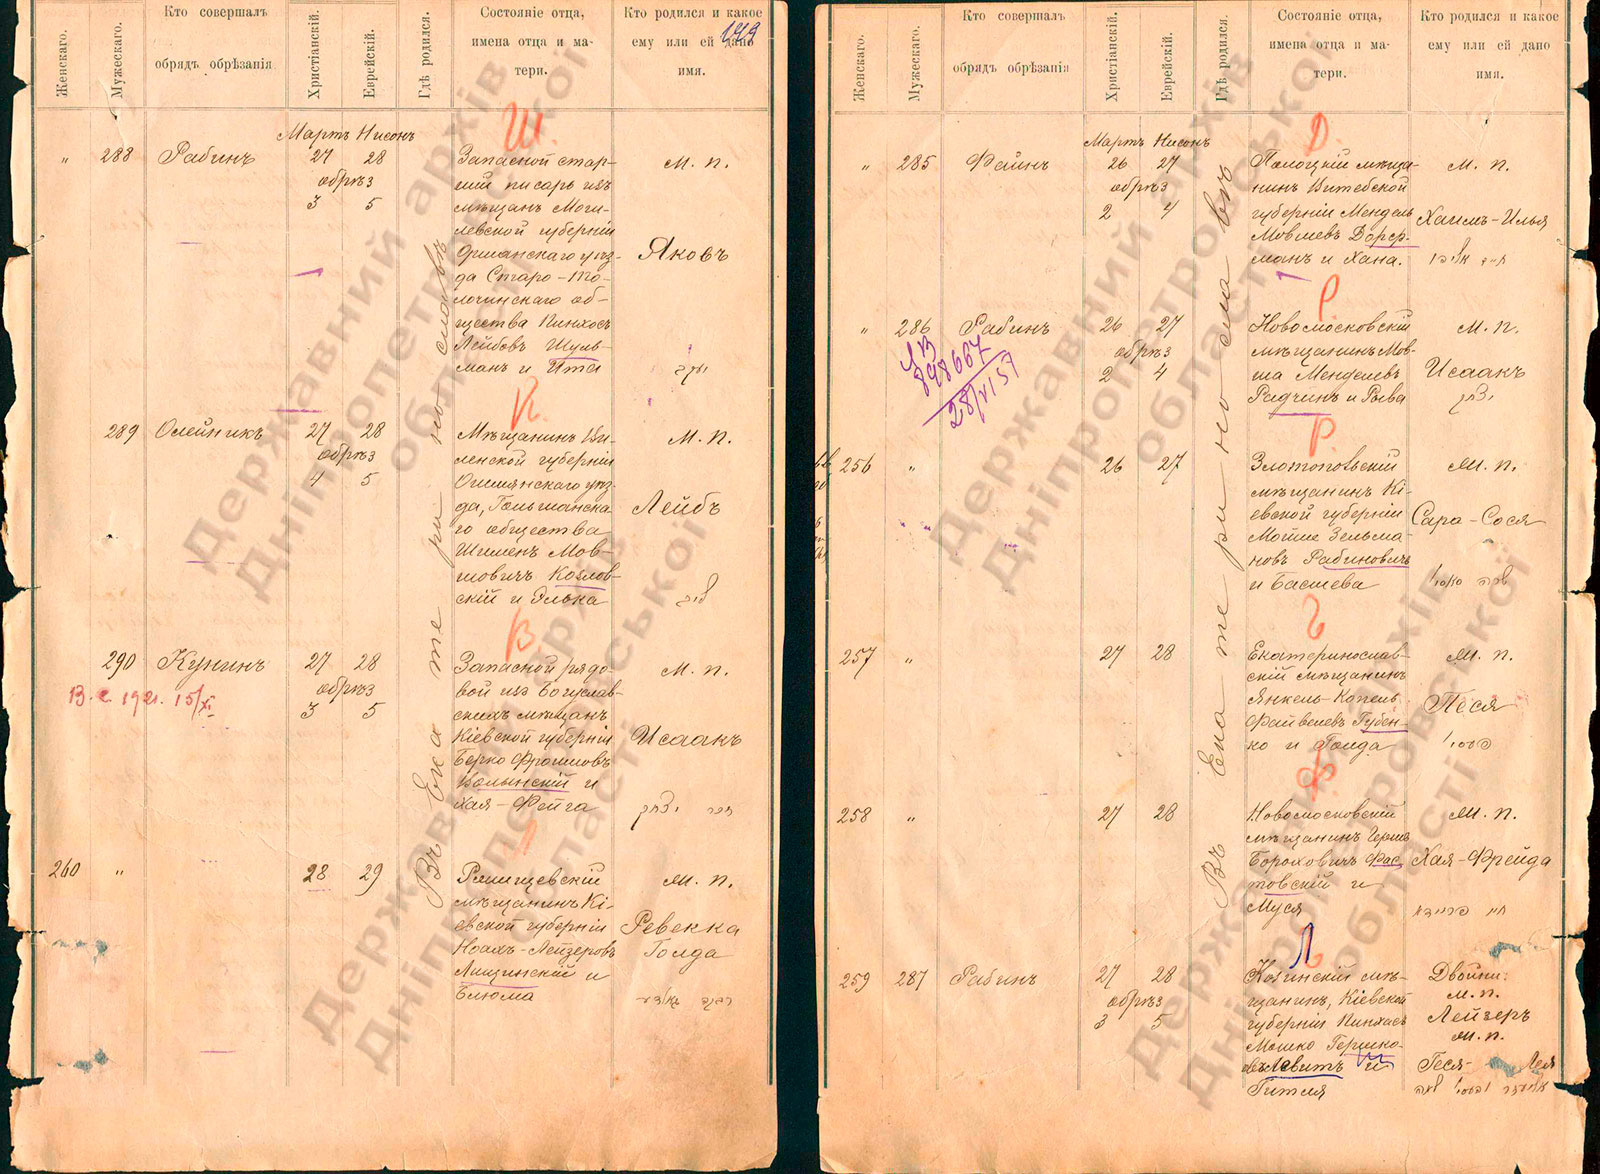 Женскаго.
Мужескаго.
Кто совершалъ
обрядъ обрѣзанія
Христіанскій.
Еврейскій.
Гдѣ родился.
Состояніе отца,
имена отца и ма-
тери.
Кто родился и какое
ему или ей дано
имя.
Въ Екатеринославѣ
Мартъ Нисонъ
Ш.
" 288 Рабинъ 27 28
обрѣз
3 5
Запасной стар-
шій писарь изъ
мѣщан Моги-
левской губерніи
Оршанскаго уѣз-
да Старо-То-
лочинскаго об-
щества Пинхосъ
Лейбовъ Шуль-
манъ и Ита
М. п.
Яковъ
יעקב
К.
289 Олейникъ 27 28
обрѣз
4 5
Мѣщанинъ Ви-
ленской губерніи
Ошмянскаго уѣз-
да, Гольшанска-
го общества
Шименъ Мов-
шовичъ Козлов-
скій и Элька
М. п.
Лейбъ
לייב
В.
290 Кунинъ 27 28
В. с. 1921. 15/XI
обрѣз
3 5
Запасной рядо-
вой изъ Богуслав-
скихъ мѣщанъ
Кіевской губерніи
Берко Фроимовъ
Волынскій и
Хая-Фейга
М. п.
Исаакъ
יצחק
Л
260 " 28 29
Ржищевскій
мѣщанинъ Кі-
евской губерніи
Ноахъ-Лейзеровъ
Лищинскій и
Блюма
М. п.
Ревекка
Голда
רבקה גאלדע
Женскаго.
Мужескаго.
Кто совершалъ
обрядъ обрѣзанія
Христіанскій.
Еврейскій.
Гдѣ родился.
Состояніе отца,
имена отца и ма-
тери.
Кто родился и какое
ему или ей дано
имя.
Въ Екатеринославѣ
Мартъ Нисонъ
Д.
" 285 Файнъ 26 27
обрѣз
2 4
Полоцкій мѣща-
нинъ Витебской
губерніи Мендель
Мовшевъ Дорф-
манъ и Хана.
М. п.
Хаимъ-Илья
חיים אליהו
Р.
" 286 Рабинъ 26 27
обрѣз
2 4
898667
28/VI 51
Новомосковскій
мѣщанинъ Мов-
ша Менделевъ
Радчинъ и Рыва
М. п.
Исаакъ
יצחק
Р.
256 " 26 27
Златопольскій
мѣщанинъ Кі-
евской губерніи
Мойше Зельма-
новъ Рабиновичъ
и Басшева
М. п.
Сара-Сося
שרה סאסי
Г
257 " 27 28
Екатеринослав-
скій мѣщанинъ
Янкель-Копель
Файвелевъ Губен-
ко и Голда
М. п.
Песя
פעסי
Ф.
258 " 27 28
Новомосковскій
мѣщанинъ Герш
Бороховичъ Фас-
товскій и
Муся
М. п.
Хая-Фрейда
חיה פריידא
Л
259 287 Рабинъ 27 28
обрѣз
3 5
Кагинскій мѣ-
щанинъ, Кіевской
губерніи Пинхасъ
Мошко Гершко-
въ Левитъ и
Гитля
Двойни:
м. п.
Лейзеръ
м. п.
Геся- Лея
Державний архів
Дніпропетровської
області